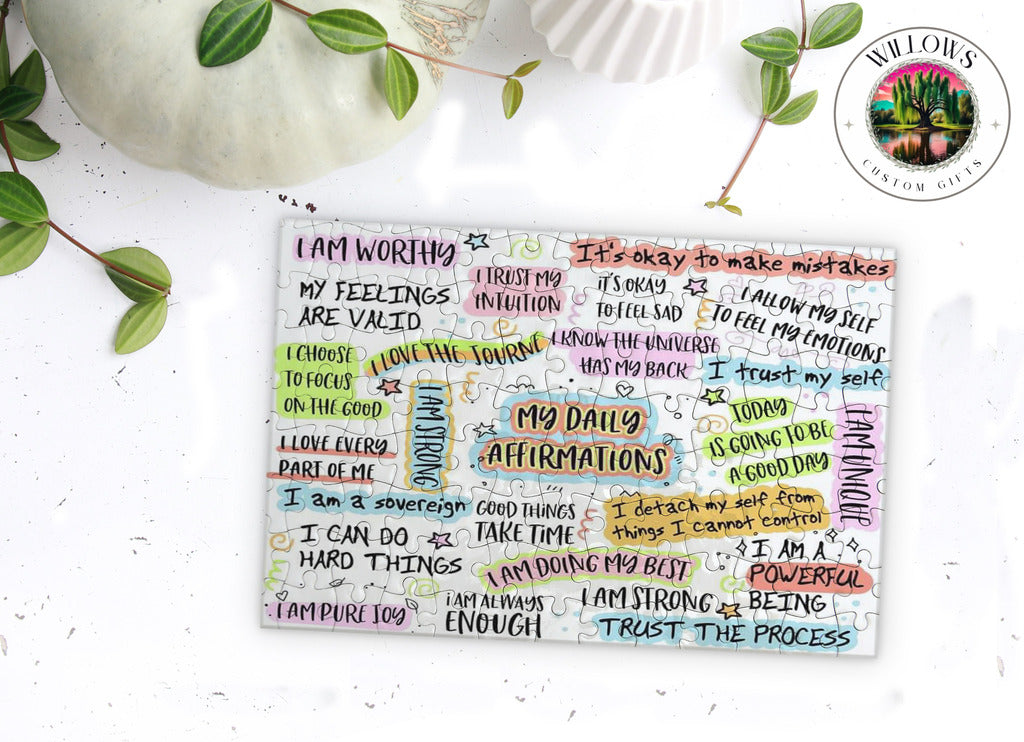 WILLOWS
CUSTOM GIFTS
I AM WORTHY
It's okay to make mistakes
I TRUST MY
INTUITION
iT'S OKAY
TO FEEL SAD
I ALLOW MY SELF
TO FEEL MY EMOTIONS
MY FEELINGS
ARE VALID
I LOVE THE JOURNE
I KNOW THE UNIVERSE
HAS MY BACK
I trust my self
I CHOOSE
TO FOCUS
ON THE GOOD
I AM STRONG
MY DAILY
AFFIRMATIONS
TODAY
IS GOING TO BE
A GOOD DAY
I AM UNIQUE
I LOVE EVERY
PART OF ME
I am a sovereign
GOOD THINGS
TAKE TIME
I detach my self from
things I cannot control
I CAN DO
HARD THINGS
I AM DOING MY BEST
I AM A
POWERFUL
BEING
I AM PURE JOY
i AM ALWAYS
ENOUGH
I AM STRONG
TRUST THE PROCESS